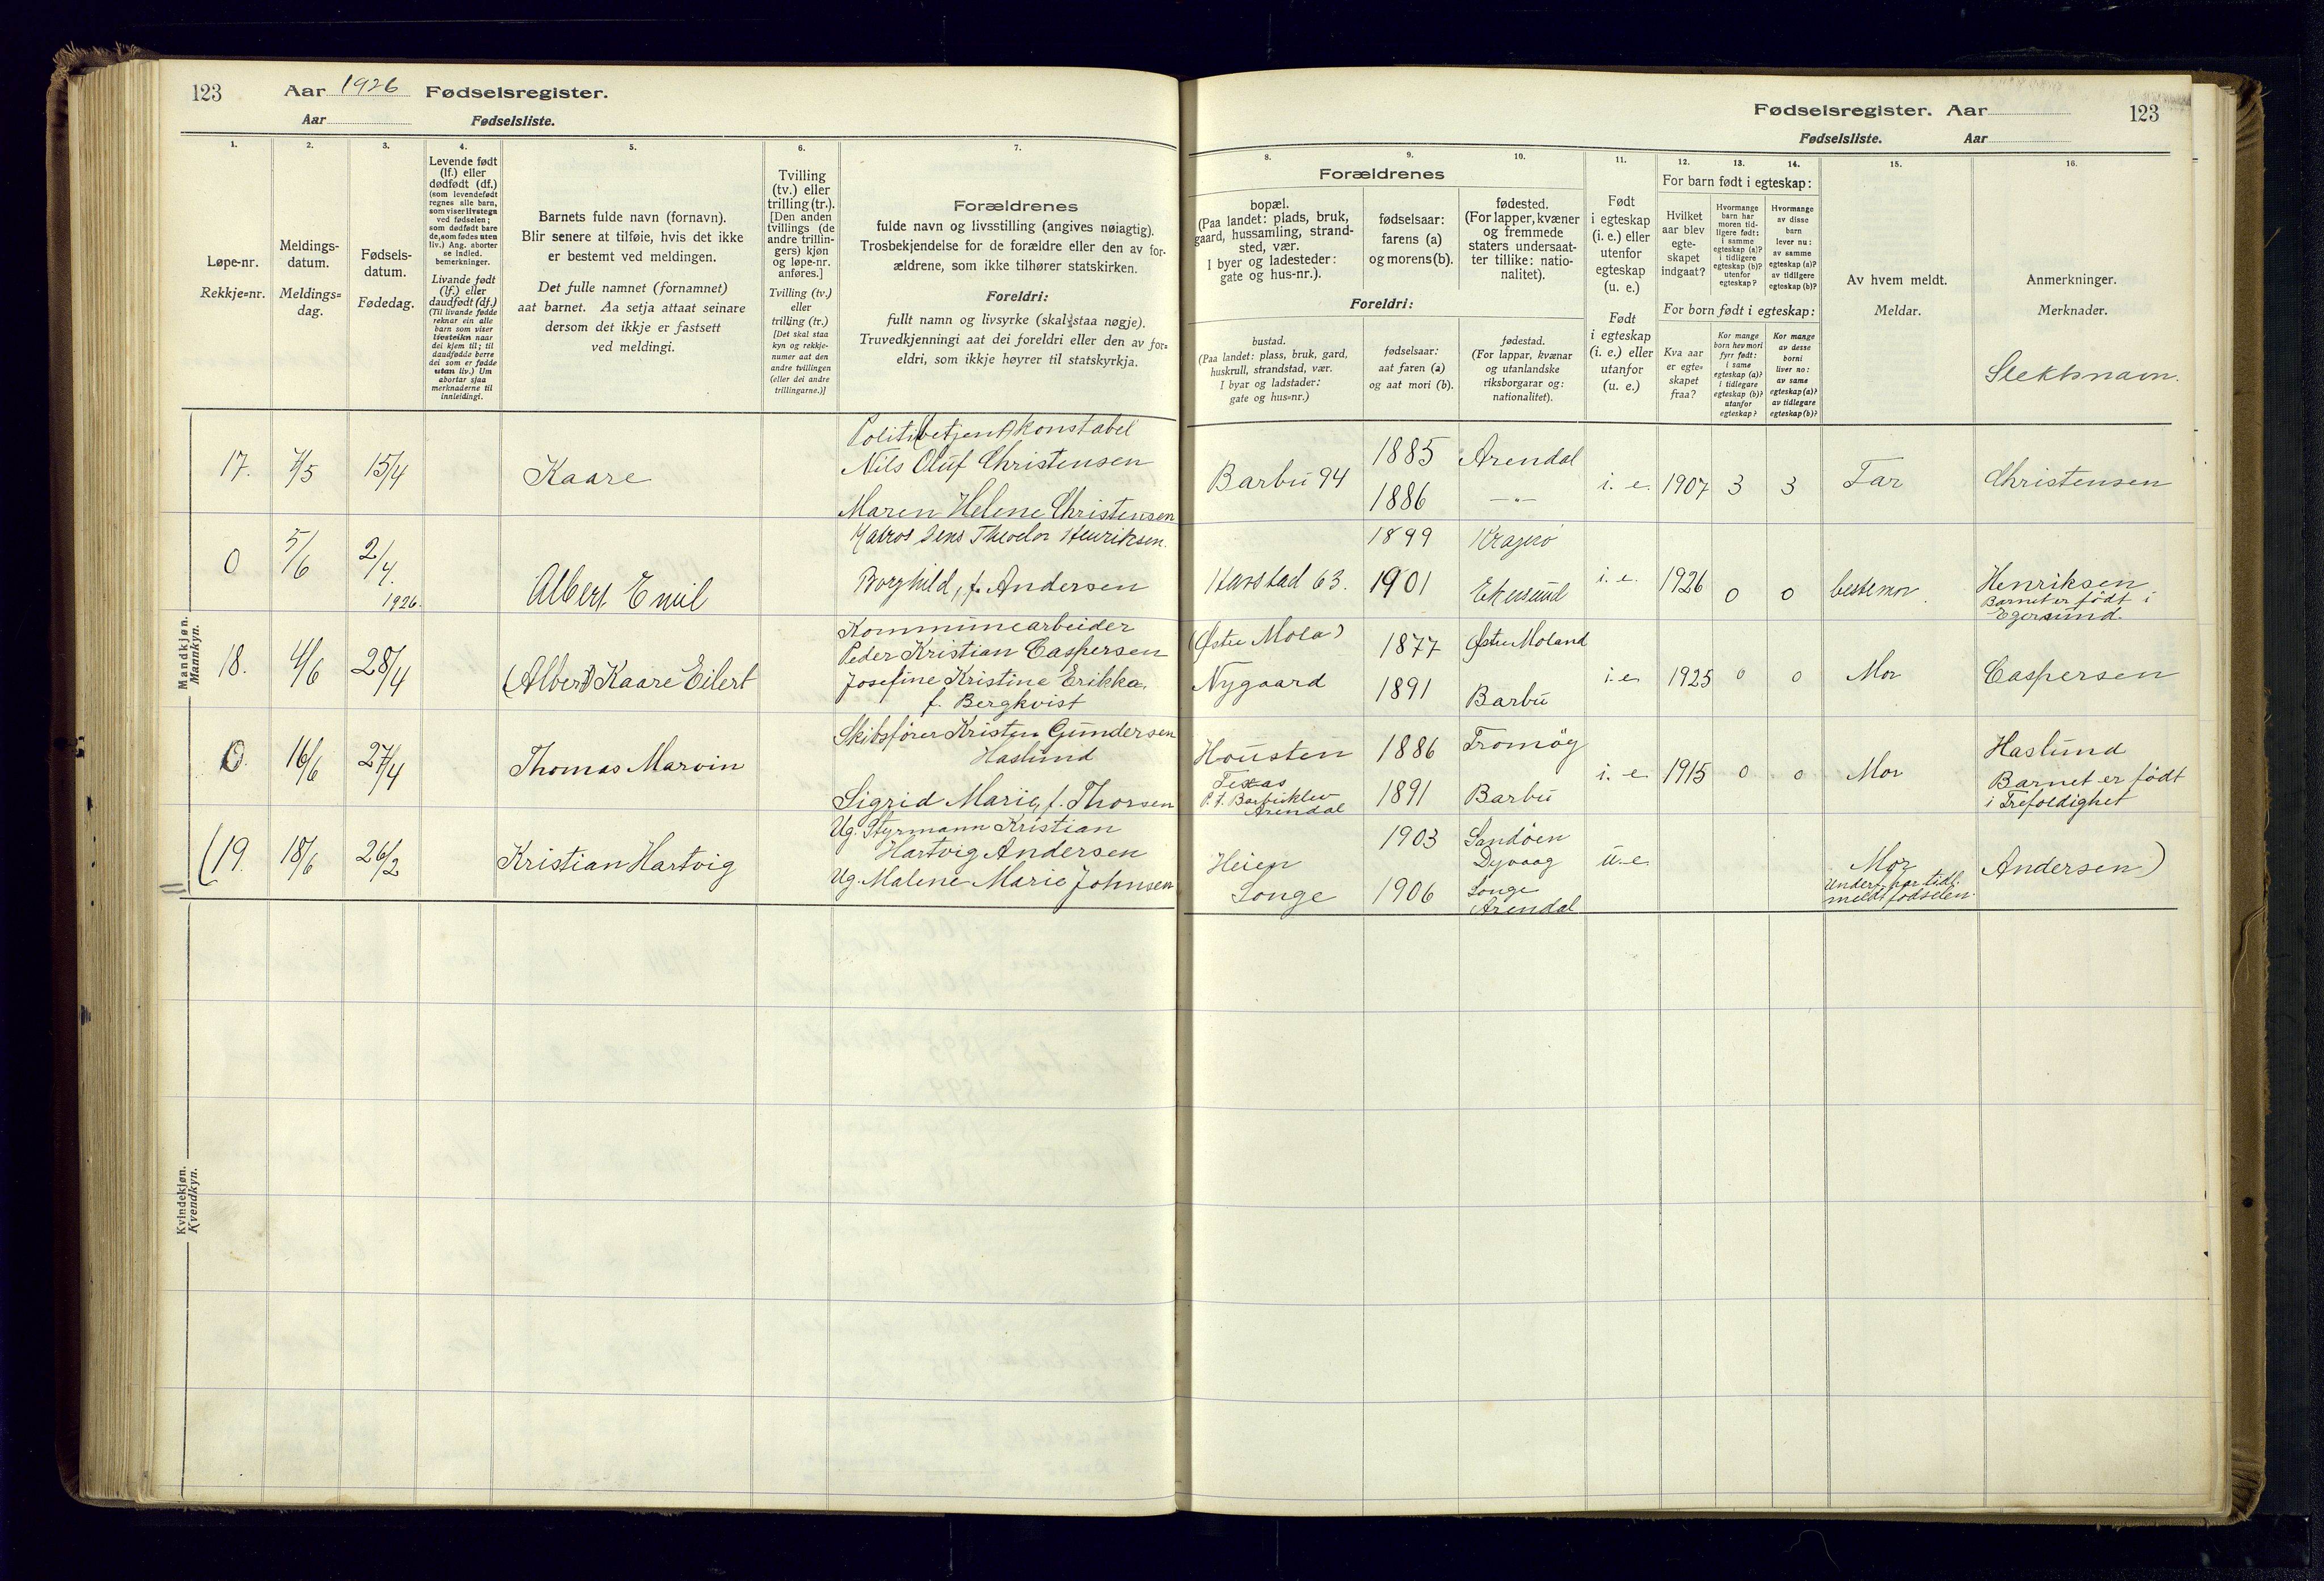 123 Aar 1926 Fødselsregister.
Aar Fødselsliste.
Fødselsregister. Aar 123
Fødselsliste. Aar
1. 2. 3. 4. 5. 6. 7. 8. 9. 10. 11. 12. 13. 14. 15. 16.
Løpe-nr.
Rekkje=nr.
Meldings-
datum.
Meldings=
dag.
Fødsels-
datum.
Fødedag.
Levende født
(lf.) eller
dødfødt (df.)
(som levendefødt
regnes alle barn,
som viser livstegn
ved fødselen;
som dødfødt bare
de, som fødes uten
liv.) Ang. aborter
se indled.
bemerkninger.
Livande født
(lf.) eller
daudfødt (df.)
(Til livande fødde
reknar ein alle
barn som viser
livsteikn naar
dei kjem til; til
daudfødde berre
dei som er fødde
utan liv.) Um
abortar sjaa
merknaderne til
innleidingi.
Barnets fulde navn (fornavn).
Blir senere at tilføie, hvis det ikke
er bestemt ved meldingen.
Det fulle namnet (fornamnet)
aat barnet. Aa setja attaat seinare
dersom det ikkje er fastsett
ved meldingi.
Tvilling
(tv.) eller
trilling (tr.).
[Den anden
tvillings (de
andre trillin-
gers) kjøn
og løpe-nr.
anføres.]
Tvilling (tv.)
eller
trilling (tr.)
[Det skal staa
kyn og rekkje-
numer aat den
andre tvillingen
(eller dei andre
trillingarne.)]
Forældrenes
fulde navn og livsstilling (angives nøiagtig).
Trosbekjendelse for de forældre eller den av for-
ældrene, som ikke tilhører statskirken.
Foreldri:
fullt namn og livsyrke (skal staa nøgje).
Truvedkjenningi aat dei foreldri eller den av for=
eldri, som ikkje høyrer til statskyrkja.
Forældrenes
bopæl.
(Paa landet: plads, bruk,
gaard, hussamling, strand-
sted, vær.
I byer og ladesteder:
gate og hus-nr.).
fødselsaar:
farens (a)
og morens (b).
fødested.
(For lapper, kvæner
og fremmede
staters undersaat-
ter tillike: natio-
nalitet).
Foreldri:
bustad.
(Paa landet: plass, bruk, gard,
huskrull, strandstad, vær.
I byar og ladstader:
gate og hus=nr.)
fødselsaar:
aat faren (a)
og aat mori (b).
fødestad.
(For lappar, kvænar
og utanlandske
riksborgarar og:
nationalitet).
Født
i egteskap
(i. e.) eller
utenfor
egteskap
(u. e.)
Født
i egteskap
(i. e.) eller
utanfor
(u. e.)
For barn født i egteskap:
Hvilket
aar blev
egte-
skapet
indgaat?
Hvormange
barn har
moren tid-
ligere født:
i samme
egteskap (a)?
i tidligere
egteskap (b)?
utenfor
egteskap?
Hvormange
av disse
barn
lever nu:
av samme
egteskap (a)?
av tidligere
egteskap (b)?
For born født i egteskap:
Kva aar
er egte=
skapet
fraa?
Kor mange
born hev mori
fyrr født:
i same
egteskap (a)?
i tidlegare
egteskap (b)?
utanfor
egteskap?
Kor mange
av desse
borni
liver no:
av same
egteskap (a)?
av tidlegare
egteskap (b)?
Av hvem meldt.
Meldar.
Anmerkninger.
Merknader.
Slektsnavn.
Mandkjøn.
Mannkyn.
Politi(betjent) konstabel
17. 7/5 15/4 Kaare Nils Oluf Christensen Barbu 94 1885 Arendal i. e. 1907 3 3 Far Christensen
Maren Helene Christensen 1886 —"—
Matros Jens Theodor Henriksen. 1899 Kragerø
0 5/6 2/4 1926. Albert Emil Borghild, f. Andersen Havstad 63. 1901 Ekersund i. e. 1926 0 0 bestemor Henriksen
Barnet er født i
Egersund.
Kommunearbeider (Østre Mola)
18. 4/6 28/4 (Albert) Kaare Eilert Peder Kristian Caspersen 1877 Østre Moland
Josefine Kristine Erikka, Nygaard 1891 Barbu i. e. 1925 0 0 Mor Caspersen
f. Bergkvist
Skibsfører Kristen Gundersen
0. 16/6 27/4 Thomas Marvin Haslund Housten 1886 Tromøy i. e. 1915 0 0 Mor Haslund
Texas
Sigrid Marie, f. Thorsen P. t. Barbuklev 1891 Barbu Barnet er født
Arendal i Trefoldighet
Ug. Styrmann Kristian
(19. 18/6 26/2 Kristian Hartvig Hartvig Andersen Heien 1903 Sandøen
Dyvaag u. e. Mor Andersen)
Ug. Malene Marie Johnsen Longe 1906 Longe
Arendal
Under har tidl.
meldt fødselen.
Kvindekjøn.
Kvendkyn.